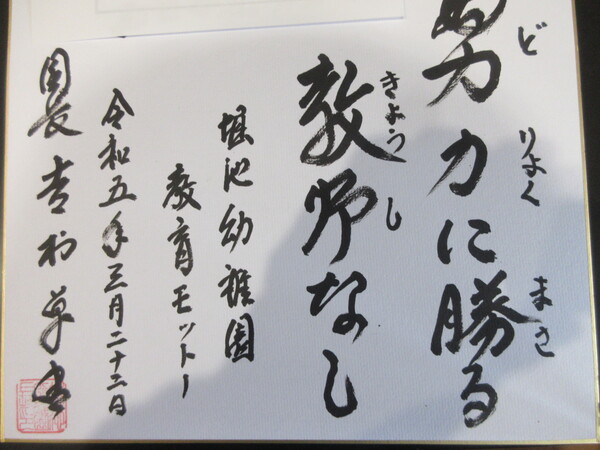 努力に勝る
どりよくまさ
教師なし
きようし
堀池幼稚園
教育モットー
令和五年三月二十二日
園長吉村